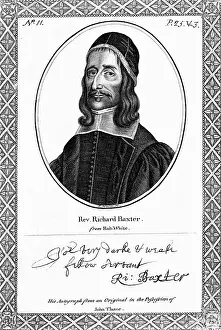 Nº. 11.
P. 25. V. 3.
Rev. Richard Baxter.
from Robt. White.
Yor very darke & weak
fellow servant
Ri: Baxter
His Autograph from an Original in the Possession of
John Thane.